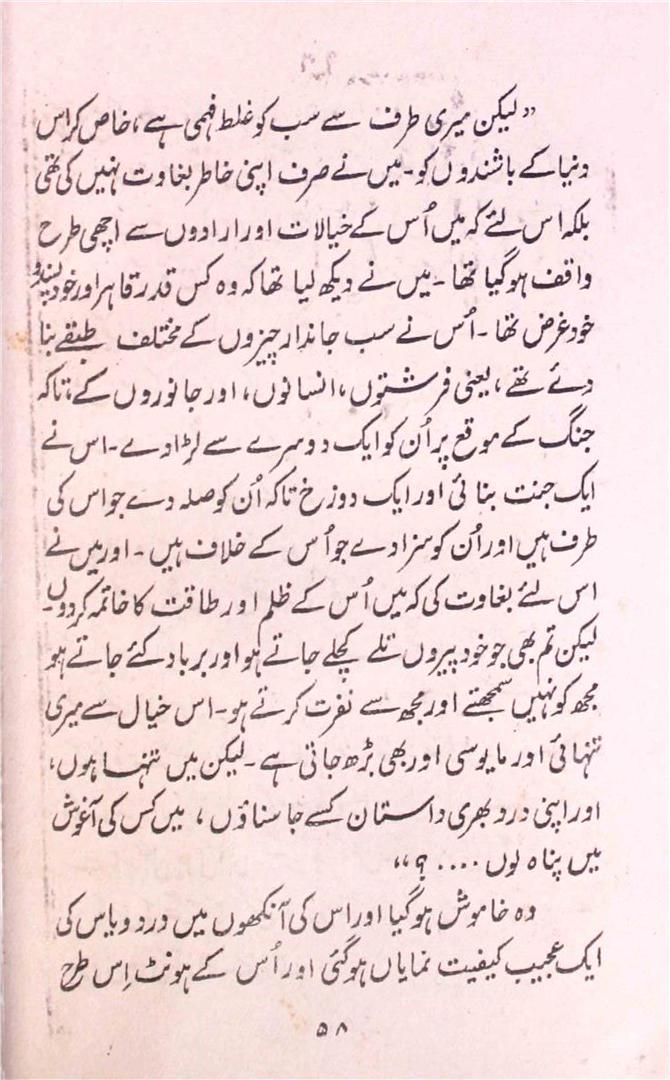 ”لیکن میری طرف سے سب کو غلط فہمی ہے، خاص کر اس
دنیا کے باشندوں کو۔ میں نے صرف اپنی خاطر بغاوت نہیں کی تھی
بلکہ اس لئے کہ میں اُس کے خیالات اور ارادوں سے اچھی طرح
واقف ہو گیا تھا۔ میں نے دیکھ لیا تھا کہ وہ کس قدر قاہر اور خود پسند و
خود غرض تھا۔ اُس نے سب جاندار چیزوں کے مختلف طبقے بنا
دئے تھے، یعنی فرشتوں، انسانوں، اور جانوروں کے، تاکہ
جنگ کے موقع پر اُن کو ایک دوسرے سے لڑا دے۔ اس نے
ایک جنت بنائی اور ایک دوزخ تاکہ اُن کو صلہ دے جو اس کی
طرف ہیں اور اُن کو سزا دے جو اُس کے خلاف ہیں۔ اور میں نے
اس لئے بغاوت کی کہ میں اُس کے ظلم اور طاقت کا خاتمہ کر دوں۔
لیکن تم بھی جو خود پیروں تلے کچلے جاتے ہو اور برباد کئے جاتے ہو
مجھ کو نہیں سمجھتے اور مجھ سے نفرت کرتے ہو۔ اس خیال سے میری
تنہائی اور مایوسی اور بھی بڑھ جاتی ہے۔ لیکن میں تنہا ہوں،
اور اپنی درد بھری داستان کسے جا سناؤں، میں کس کی آغوش
میں پناہ لوں ....؟“
وہ خاموش ہو گیا اور اس کی آنکھوں میں درد و یاس کی
ایک عجیب کیفیت نمایاں ہو گئی اور اُس کے ہونٹ اِس طرح
۵۸